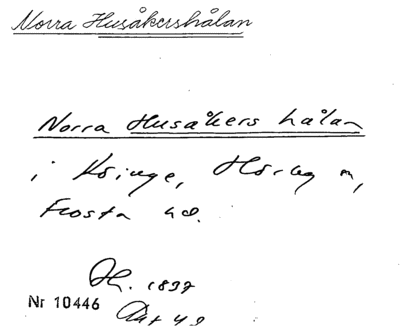 Norra Husåkershålan
Norra Husåkers hålan
i Köinge, Hörby sn,
Frosta hd.
1837
Nr 10446